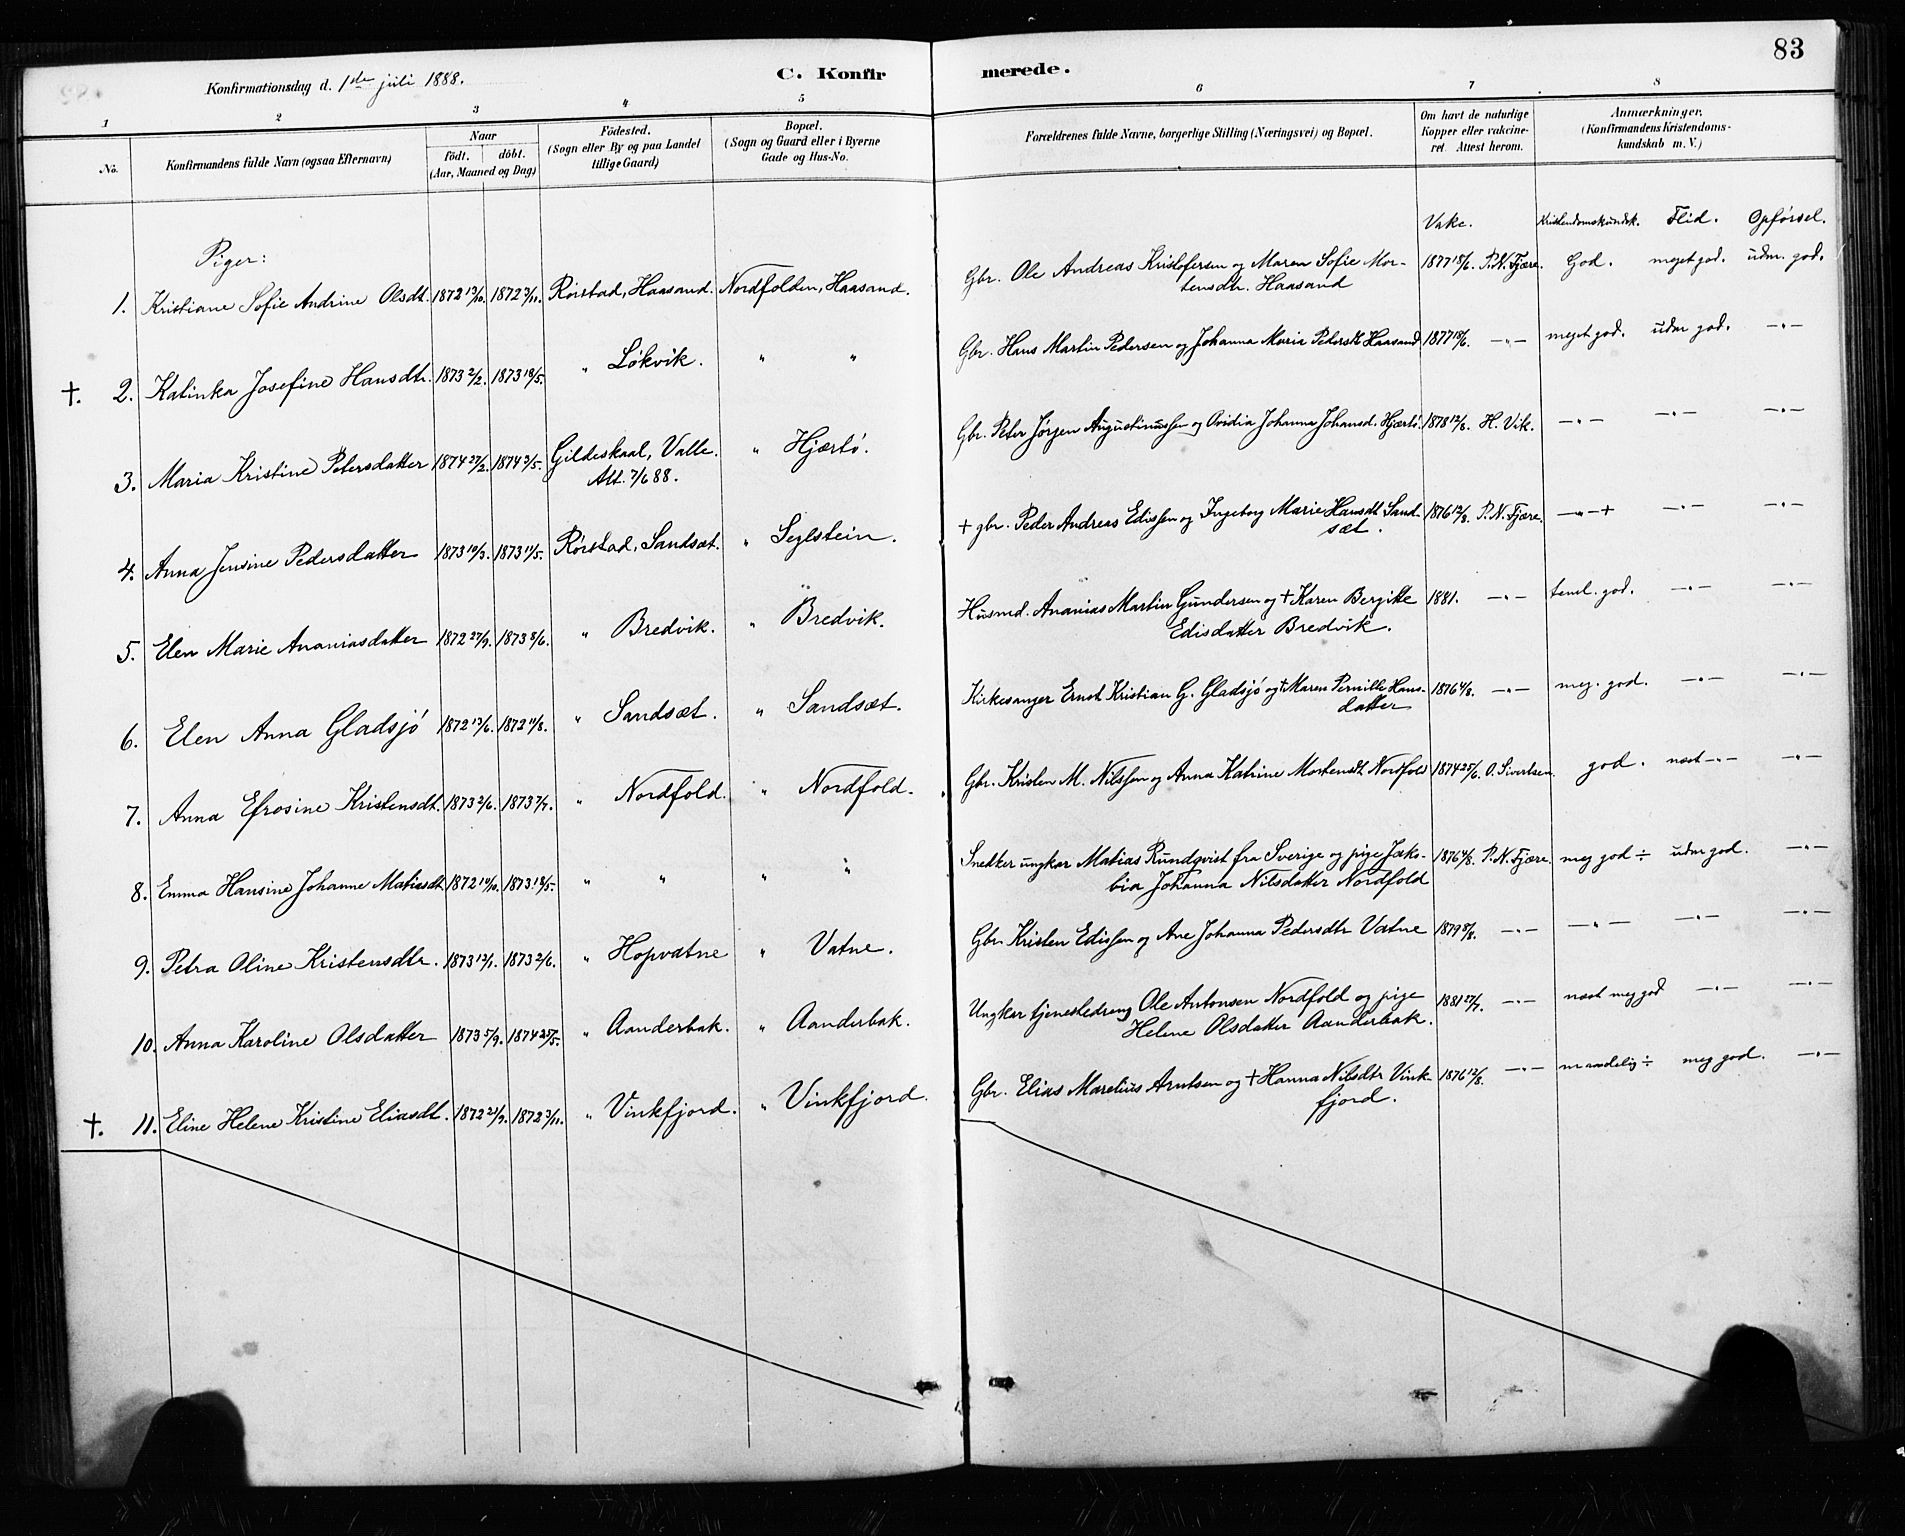 83
Konfirmationsdag d. 1ste juli 1888.
C. Konfirmerede.
1 2 3 4 5 6 7 8
No.
Konfirmandens fulde Navn (ogsaa Efternavn)
Naar
födt. döbt.
(Aar, Maaned og Dag)
Födested.
(Sogn eller By og paa Landet
tillige Gaard)
Bopæl.
(Sogn og Gaard eller i Byerne
Gade og Hus-No.
Forældrenes fulde Navne, borgerlige Stilling (Næringsvei) og Bopæl.
Om havt de naturlige
Kopper eller vakcine-
ret. Attest herom.
Anmærkninger.
(Konfirmandens Kristendoms-
kundskab m. V.)
Vakc. Kristendomskundsk. Flid. Opförsel.
Piger:
1. Kristiane Sofie Andrine Olsdt. 1872 13/10. 1872 3/11. Rörstad, Haasand. Nordfolden, Haasand. Gbr. Ole Andreas Kristofersen og Maren Sofie Mor- 1877 18/6. P. N. Fjære. God. meget god. udm. god.
tensdtr. Haasand
†. 2. Katinka Josefine Hansdtr. 1873 2/2. 1873 18/5. " Lökvik. " " Gbr. Hans Martin Pedersen og Johanna Maria Petersdt Haasand 1877 18/6. —"— meget god. udm god. —"—
3. Maria Kristine Petersdatter 1874 27/2. 1874 3/5. Gildeskaal, Valle. " Hjærtö. Gbr. Peter Jörgen Augustinussen og Ovidia Johanna Johansd. Hjærtö. 1878 12/8. H. Vik. —"— —"— —"—
Att. 7/6 88.
4. Anna Jensine Pedersdatter 1873 10/3. 1873 11/5. Rörstad, Sandsæt. " Seglstein. + gbr. Peder Andreas Edissen og Ingeborg Marie Hansdt Sand- 1876 12/8. P. N. Fjære. —"—+ —"— —"—
sæt.
5. Elen Marie Ananiasdatter 1872 27/9. 1873 8/6. " Bredvik. " Bredvik. Husmd. Ananias Martin Gundersen og + Karen Bergitte 1881. —"— teml. god. —"— —"—
Edisdatter Bredvik.
6. Elen Anna Gladsjö 1872 13/6. 1872 11/8. " Sandsæt. " Sandsæt. Kirkesanger Ernst Kristian G. Gladsjö og + Maren Pernille Hans- 1876 4/8. —"— meg. god. —"— —"—
datter
7. Anna Efrosine Kristensdt. 1873 2/6. 1873 7/7. " Nordfold. " Nordfold. Gbr. Kristen M. Nilssen og Anna Katrine Mortensdt Nordfold 1874 25/6. O. Sivertsen. god. næst —"— —"—
8. Emma Hansine Johanne Matiasdt 1872 14/10. 1873 18/5. " " " " Snedker ungkar Matias Rundqvist fra Sverige og pige Jako- 1876 4/8. P. N. Fjære. meg god ÷ udm god. —"—
bia Johanna Nilsdatter Nordfold
9. Petra Oline Kristensdtr. 1873 12/1. 1873 2/6. " Hopvatne " Vatne. Gbr. Kristen Edissen og Ane Johanna Pedersdtr Vatne 1879 8/8. —"— —"— —"— —"—
10. Anna Karoline Olsdatter 1873 5/9. 1874 25/5. " Aanderbak. " Aanderbak. Ungkar tjenestedreng Ole Antonsen Nordfold og pige 1881 27/7. —"— næst meg god —"— —"—
Helene Olsdatter Aanderbak.
†. 11. Eline Helene Kristine Eliasdt. 1872 21/9. 1872 3/11. " Vinkfjord. " Vinkfjord. Gbr. Elias Marelius Arntsen og + Hanna Nilsdtr Vink- 1876 12/8. —"— maadelig ÷ meg god. —"—
fjord.